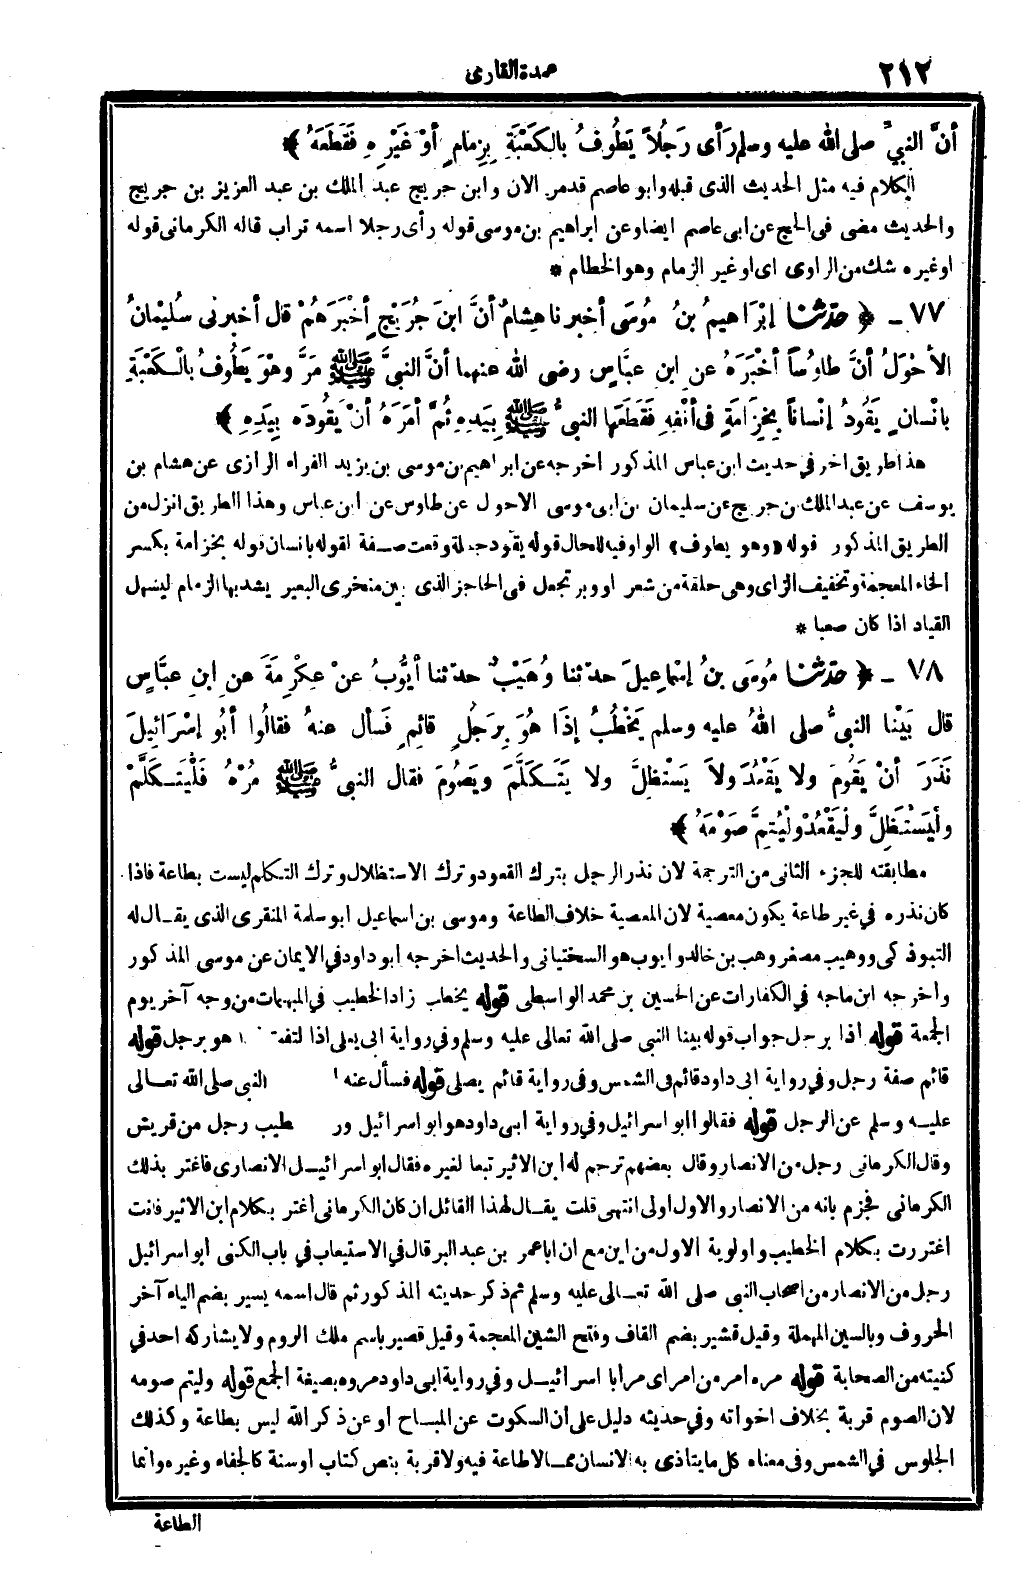 ٢١٢
عمدة القارى
أنَّ النبيَّ صلى الله عليه وسلم رَأى رَجُلاً يَطُوفُ بالكَعْبَةِ بِزِمَامٍ أوْ غَيْرِهِ فَقَطَعَهُ ﴾
الكلام فيه مثل الحديث الذى قبله وابو عاصم قدمر الان وابن جريج عبد الملك بن عبد العزيز بن جريج
والحديث مضى فى الحج عن ابى عاصم ايضا وعن ابراهيم بن موسى قوله رأى رجلا اسمه تراب قاله الكرمانى قوله
او غيره شك من الراوى اى او غير الزمام وهو الخطام *
٧٧ ـ ﴿ حَدَّثَنَا إبْرَاهِيمُ بنُ مُوسَى أخبرنا هِشامٌ أنَّ ابنَ جُرَيْجٍ أخْبَرَهُمْ قال أخبرنى سُلَيْمانُ
الأحْوَلُ أنَّ طاوُساً أخْبَرَهُ عنِ ابنِ عبَّاسٍ رضى الله عنهما أنَّ النبيَّ ﷺ مَرَّ وهْوَ يَطُوفُ بالْكَعْبَةِ
بانْسانٍ يَقُودُ إنْساناً بِخِزَامَةٍ فى أنْفِهِ فَقَطَعَها النبيُّ ﷺ بِيَدِهِ ثُمَّ أمَرَهُ أنْ يَقُودَه بِيَدِهِ ﴾
هذا طريق اخر في حديث ابن عباس المذكور اخرجه عن ابراهيم بن موسى بن يزيد الفراء الرازى عن هشام بن
يوسف عن عبد الملك بن جريج عن سليمان بن ابى موسى الاحول عن طاوس عن ابن عباس وهذا الطريق انزل من
الطريق المذكور قوله «وهو يطوف» الواو فيه للحال قوله يقود جملة وقعت صفة لقوله بانسان قوله بخزامة بكسر
الخاء المعجمة وتخفيف الزاى وهى حلقة من شعر او وبر تجعل فى الحاجز الذى بين منخرى البعير يشد بها الزمام ليسهل
القياد اذا كان صعبا *
٧٨ ـ ﴿ حَدَّثَنَا مُوسَى بنُ إسْماعِيلَ حدثنا وُهَيْبٌ حدثنا أيُّوبُ عنْ عِكْرِمَةَ عنِ ابنِ عبَّاسٍ
قال بَيْنا النبيُّ صلى اللهُ عليه وسلم يَخْطُبُ إذَا هُوَ بِرَجُلٍ قائِمٍ فَسأل عنهُ فقالُوا أبُو إسْرَائِيلَ
نَذَرَ أنْ يَقُومَ ولا يَقْعُدَ ولاَ يَسْتَظِلَّ ولا يَتَكَلَّمَ ويَصُومَ فقال النبيُّ ﷺ مُرْهُ فَلْيَتَكَلَّمْ
ولْيَسْتَظِلَّ ولْيَقْعُدْ ولْيُتِمَّ صَوْمَهُ ﴾
مطابقته للجزء الثانى من الترجمة لان نذر الرجل بترك القعود وترك الاستظلال وترك التكلم ليست بطاعة فاذا
كان نذره في غير طاعة يكون معصية لان المعصية خلاف الطاعة وموسى بن اسماعيل ابو سلمة المنقرى الذى يقال له
التبوذكى ووهيب مصغر وهب بن خالد وايوب هو السختيانى والحديث اخرجه ابو داود في الايمان عن موسى المذكور
واخرجه ابن ماجه في الكفارات عن الحسين بن محمد الواسطى قوله يخطب زاد الخطيب في المبهمات من وجه آخر يوم
الجمعة قوله اذا برجل جواب قوله بينا النبى صلى الله تعالى عليه وسلم وفي رواية ابى يعلى اذا لتفت هو برجل قوله
قائم صفة رجل وفي رواية ابى داود قائم فى الشمس وفى رواية قائم يصلى قوله فسأل عنه النبى صلى الله تعالى
عليه وسلم عن الرجل قوله فقالوا ابو اسرائيل وفي رواية ابى داود هو ابو اسرائيل ور طيب رجل من قريش
وقال الكرمانى رجل من الانصار وقال بعضهم ترجم له ابن الاثير تبعا لغيره فقال ابو اسرائيل الانصارى فاغتر بذلك
الكرمانى فجزم بانه من الانصار والاول اولى انتهى قلت يقال لهذا القائل ان كان الكرمانى اغتر بكلام ابن الاثير فانت
اغتررت بكلام الخطيب واولوية الاول من اين مع ان ابا عمر بن عبد البر قال في الاستيعاب في باب الكنى ابو اسرائيل
رجل من الانصار من اصحاب النبى صلى الله تعالى عليه وسلم ثم ذكر حديثه المذكور ثم قال اسمه يسير بضم الياء آخر
الحروف وبالسين المهملة وقيل قشير بضم القاف وفتح الشين المعجمة وقيل قصير باسم ملك الروم ولا يشاركه احد في
كنيته من الصحابة قوله مره امر من امر اى مر ابا اسرائيل وفي رواية ابى داود مروه بصيغة الجمع قوله وليتم صومه
لان الصوم قربة بخلاف اخواته وفي حديثه دليل على ان السكوت عن المباح او عن ذكر الله ليس بطاعة وكذلك
الجلوس في الشمس وفى معناه كل ما يتاذى به الانسان مما لاطاعة فيه ولا قربة بنص كتاب او سنة كالجفاء وغيره وانما
الطاعة